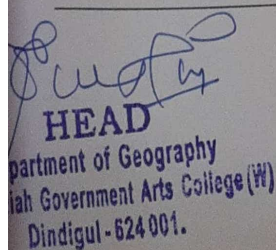 HEAD
partment of Geography
iah Government Arts College (W)
Dindigul - 624 001.